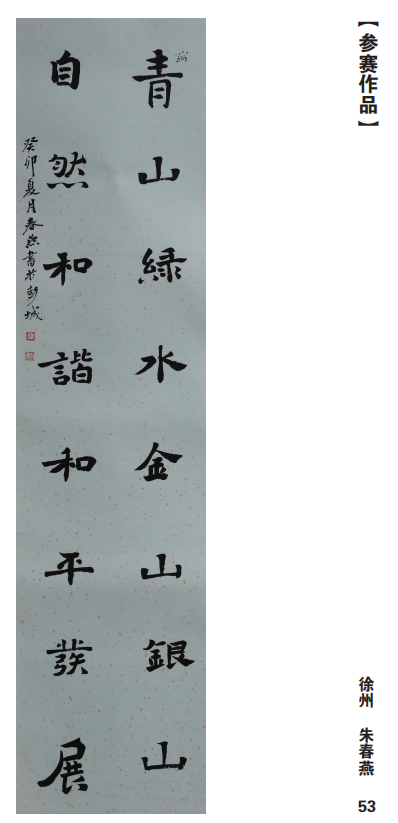 【参赛作品】
青山綠水金山銀山
自然和諧和平發展
癸卯夏月春燕書於彭城
徐州 朱春燕
53